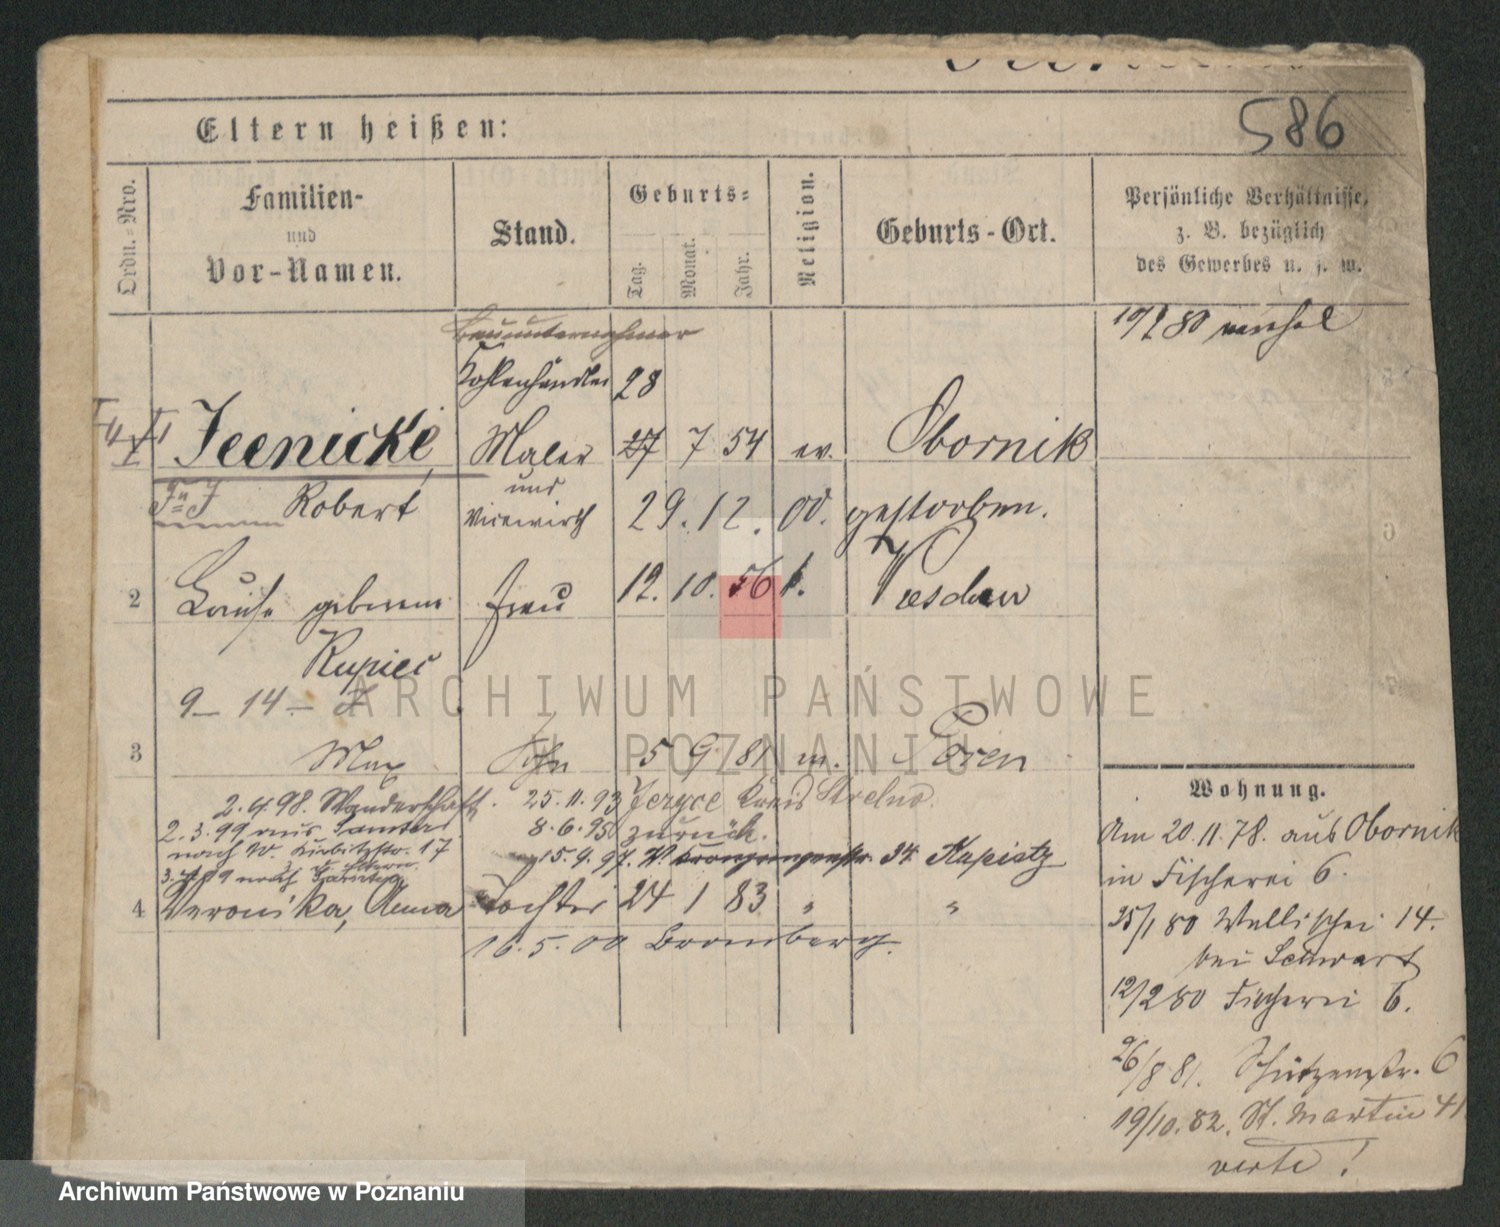 586
Eltern heißen:
Ordn.-Nro.
Familien-
und
Vor-Namen.
Stand.
Geburts-
Tag. Monat. Jahr.
Religion.
Geburts-Ort.
Persönliche Verhältnisse,
z. B. bezüglich
des Gewerbes u. s. w.
Bauunternehmer
Kohlenhändler 28
Jeenicke Maler 27 7 54 ev. Obornik
und
Robert Vicewirth 29. 12. 00. gestorben.
2 Louise geborene Frau 12. 10. 56 k. Weschen
Rupiec
9 - 14 -
3 Max Sohn 5 9 81 Posen
2.4.98. Wanderschaft. 25.11.93 Jeryce Kreis Strelno.
2.3.99 aus Samter 8.6.95 zurück.
nach 17 15.9.97. 34 Kapistz
nach
4 Veronika, Anna Tochter 24 1 83 " "
16.5.00 Bromberg.
Wohnung.
Am 20.11.78. aus Obornik
in Fischerei 6.
25/1 80 Wallischei 14.
bei Schwarz
12/2 80 Fischerei 6.
26/8 81. Schützenstr. 6
19/10. 82. St. Martin 41
verte!
ARCHIWUM PAŃSTWOWE
W POZNANIU
Archiwum Państwowe w Poznaniu